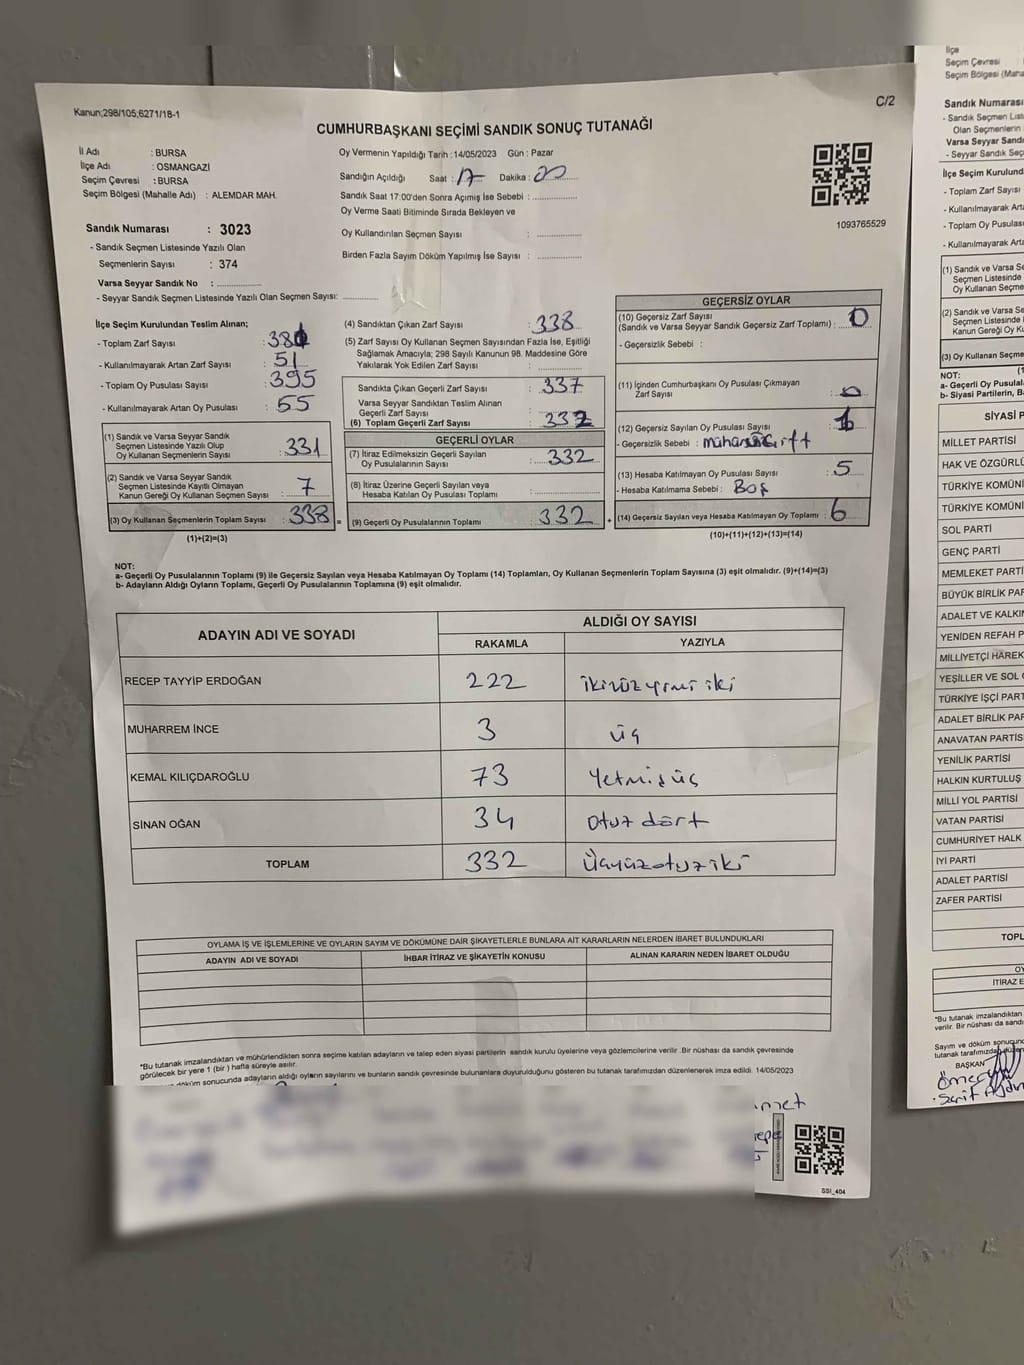 Kanun;298/105;6271/18-1
C/2
CUMHURBAŞKANI SEÇİMİ SANDIK SONUÇ TUTANAĞI
İl Adı : BURSA
İlçe Adı : OSMANGAZİ
Seçim Çevresi : BURSA
Seçim Bölgesi (Mahalle Adı) : ALEMDAR MAH.
Oy Vermenin Yapıldığı Tarih : 14/05/2023 Gün : Pazar
Sandığın Açıldığı Saat : 17 Dakika : 00
Sandık Saat 17:00'den Sonra Açımış İse Sebebi :
Oy Verme Saati Bitiminde Sırada Bekleyen ve
Oy Kullandırılan Seçmen Sayısı :
Birden Fazla Sayım Döküm Yapılmış İse Sayısı :
1093765529
Sandık Numarası : 3023
- Sandık Seçmen Listesinde Yazılı Olan
Seçmenlerin Sayısı : 374
Varsa Seyyar Sandık No :
- Seyyar Sandık Seçmen Listesinde Yazılı Olan Seçmen Sayısı:
İlçe Seçim Kurulundan Teslim Alınan;
- Toplam Zarf Sayısı :
- Kullanılmayarak Artan Zarf Sayısı : 51
- Toplam Oy Pusulası Sayısı : 395
- Kullanılmayarak Artan Oy Pusulası : 55
(1) Sandık ve Varsa Seyyar Sandık
Seçmen Listesinde Yazılı Olup
Oy Kullanan Seçmenlerin Sayısı : 331
(2) Sandık ve Varsa Seyyar Sandık
Seçmen Listesinde Kayıtlı Olmayan
Kanun Gereği Oy Kullanan Seçmen Sayısı : 7
(3) Oy Kullanan Seçmenlerin Toplam Sayısı : 338 =
(1)+(2)=(3)
(4) Sandıktan Çıkan Zarf Sayısı : 338
(5) Zarf Sayısı Oy Kullanan Seçmen Sayısından Fazla İse, Eşitliği
Sağlamak Amacıyla; 298 Sayılı Kanunun 98. Maddesine Göre
Yakılarak Yok Edilen Zarf Sayısı :
Sandıkta Çıkan Geçerli Zarf Sayısı : 337
Varsa Seyyar Sandıktan Teslim Alınan
Geçerli Zarf Sayısı :
(6) Toplam Geçerli Zarf Sayısı :
GEÇERLİ OYLAR
(7) İtiraz Edilmeksizin Geçerli Sayılan
Oy Pusulalarının Sayısı : 332
(8) İtiraz Üzerine Geçerli Sayılan veya
Hesaba Katılan Oy Pusulası Toplamı :
(9) Geçerli Oy Pusulalarının Toplamı : 332 +
GEÇERSİZ OYLAR
(10) Geçersiz Zarf Sayısı
(Sandık ve Varsa Seyyar Sandık Geçersiz Zarf Toplamı) : 0
- Geçersizlik Sebebi :
(11) İçinden Cumhurbaşkanı Oy Pusulası Çıkmayan
Zarf Sayısı : 0
(12) Geçersiz Sayılan Oy Pusulası Sayısı : 1
- Geçersizlik Sebebi :
(13) Hesaba Katılmayan Oy Pusulası Sayısı : 5
- Hesaba Katılmama Sebebi : Boş
(14) Geçersiz Sayılan veya Hesaba Katılmayan Oy Toplamı : 6
(10)+(11)+(12)+(13)=(14)
NOT:
a- Geçerli Oy Pusulalarının Toplamı (9) ile Geçersiz Sayılan veya Hesaba Katılmayan Oy Toplamı (14) Toplamları, Oy Kullanan Seçmenlerin Toplam Sayısına (3) eşit olmalıdır. (9)+(14)=(3)
b- Adayların Aldığı Oyların Toplamı, Geçerli Oy Pusulalarının Toplamına (9) eşit olmalıdır.
ADAYIN ADI VE SOYADI
ALDIĞI OY SAYISI
RAKAMLA YAZIYLA
RECEP TAYYİP ERDOĞAN 222 ikiyüzyirmi iki
MUHARREM İNCE 3 üç
KEMAL KILIÇDAROĞLU 73 Yetmişüç
SİNAN OĞAN 34 otuz dört
TOPLAM 332 Üçyüzotuziki
OYLAMA İŞ VE İŞLEMLERİNE VE OYLARIN SAYIM VE DÖKÜMÜNE DAİR ŞİKAYETLERLE BUNLARA AİT KARARLARIN NELERDEN İBARET BULUNDUKLARI
ADAYIN ADI VE SOYADI İHBAR İTİRAZ VE ŞİKAYETİN KONUSU ALINAN KARARIN NEDEN İBARET OLDUĞU
"Bu tutanak imzalandıktan ve mühürlendikten sonra seçime katılan adayların ve talep eden siyasi partilerin sandık kurulu üyelerine veya gözlemcilerine verilir .Bir nüshası da sandık çevresinde
görülecek bir yere 1 (bir ) hafta süreyle asılır.
döküm sonucunda adayların aldığı oyların sayılarını ve bunların sandık çevresinde bulunanlara duyurulduğunu gösteren bu tutanak tarafımızdan düzenlenerek imza edildi. 14/05/2023
SSI_404
İlçe
Seçim Çevresi
Seçim Bölgesi (Maha
Sandık Numarası
- Sandık Seçmen List
Olan Seçmenlerin
Varsa Seyyar Sandı
- Seyyar Sandık Seç
İlçe Seçim Kurulund
- Toplam Zarf Sayısı
- Kullanılmayarak Arta
- Toplam Oy Pusulası
- Kullanılmayarak Arta
(1) Sandık ve Varsa Se
Seçmen Listesinde
Oy Kullanan Seçme
(2) Sandık ve Varsa Se
Seçmen Listesinde
Kanun Gereği Oy Ku
(3) Oy Kullanan Seçme
NOT:
a- Geçerli Oy Pusulal
b- Siyasi Partilerin, B
SİYASİ P
MİLLET PARTİSİ
HAK VE ÖZGÜRLÜ
TÜRKİYE KOMÜNİ
TÜRKİYE KOMÜNİ
SOL PARTİ
GENÇ PARTİ
MEMLEKET PARTİ
BÜYÜK BİRLİK PAR
ADALET VE KALKIN
YENİDEN REFAH P
MİLLİYETÇİ HAREK
YEŞİLLER VE SOL
TÜRKİYE İŞÇİ PART
ADALET BİRLİK PAR
ANAVATAN PARTİS
YENİLİK PARTİSİ
HALKIN KURTULUŞ
MİLLİ YOL PARTİSİ
VATAN PARTİSİ
CUMHURİYET HALK
İYİ PARTİ
ADALET PARTİSİ
ZAFER PARTİSİ
TOPL
OY
İTİRAZ E
"Bu tutanak imzalandıktan
verilir. Bir nüshası da sandı
Sayım ve döküm sonucund
tutanak tarafımızdan düzen
BAŞKAN